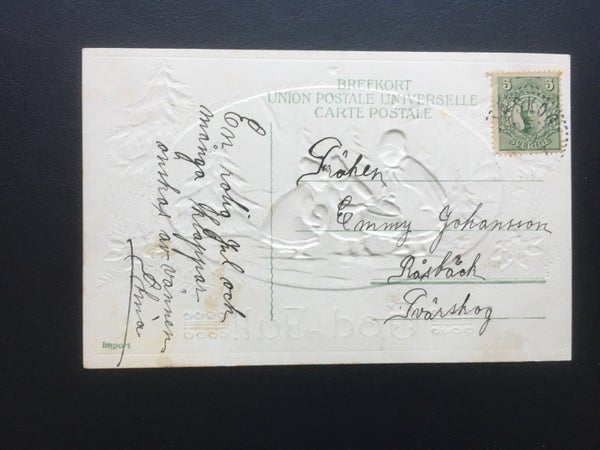 BREFKORT
UNION POSTALE UNIVERSELLE
CARTE POSTALE
5 5
SVERIGE
En rolig Jul och
många klappar
önskas av vännen
Fröken
Emmy Johansson
Råsbäck
Tvärskog
God Jul!
Import